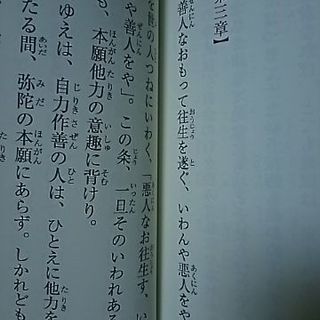 三章】
善人なおもって往生を遂ぐ、いわんや悪人をや
世の人つねにいわく、「悪人なお往生す、い
や善人をや」。この条、一旦そのいわれある
も、本願他力の意趣に背けり。
ゆえは、自力作善の人は、ひとえに他力を
たる間、弥陀の本願にあらず。しかれども